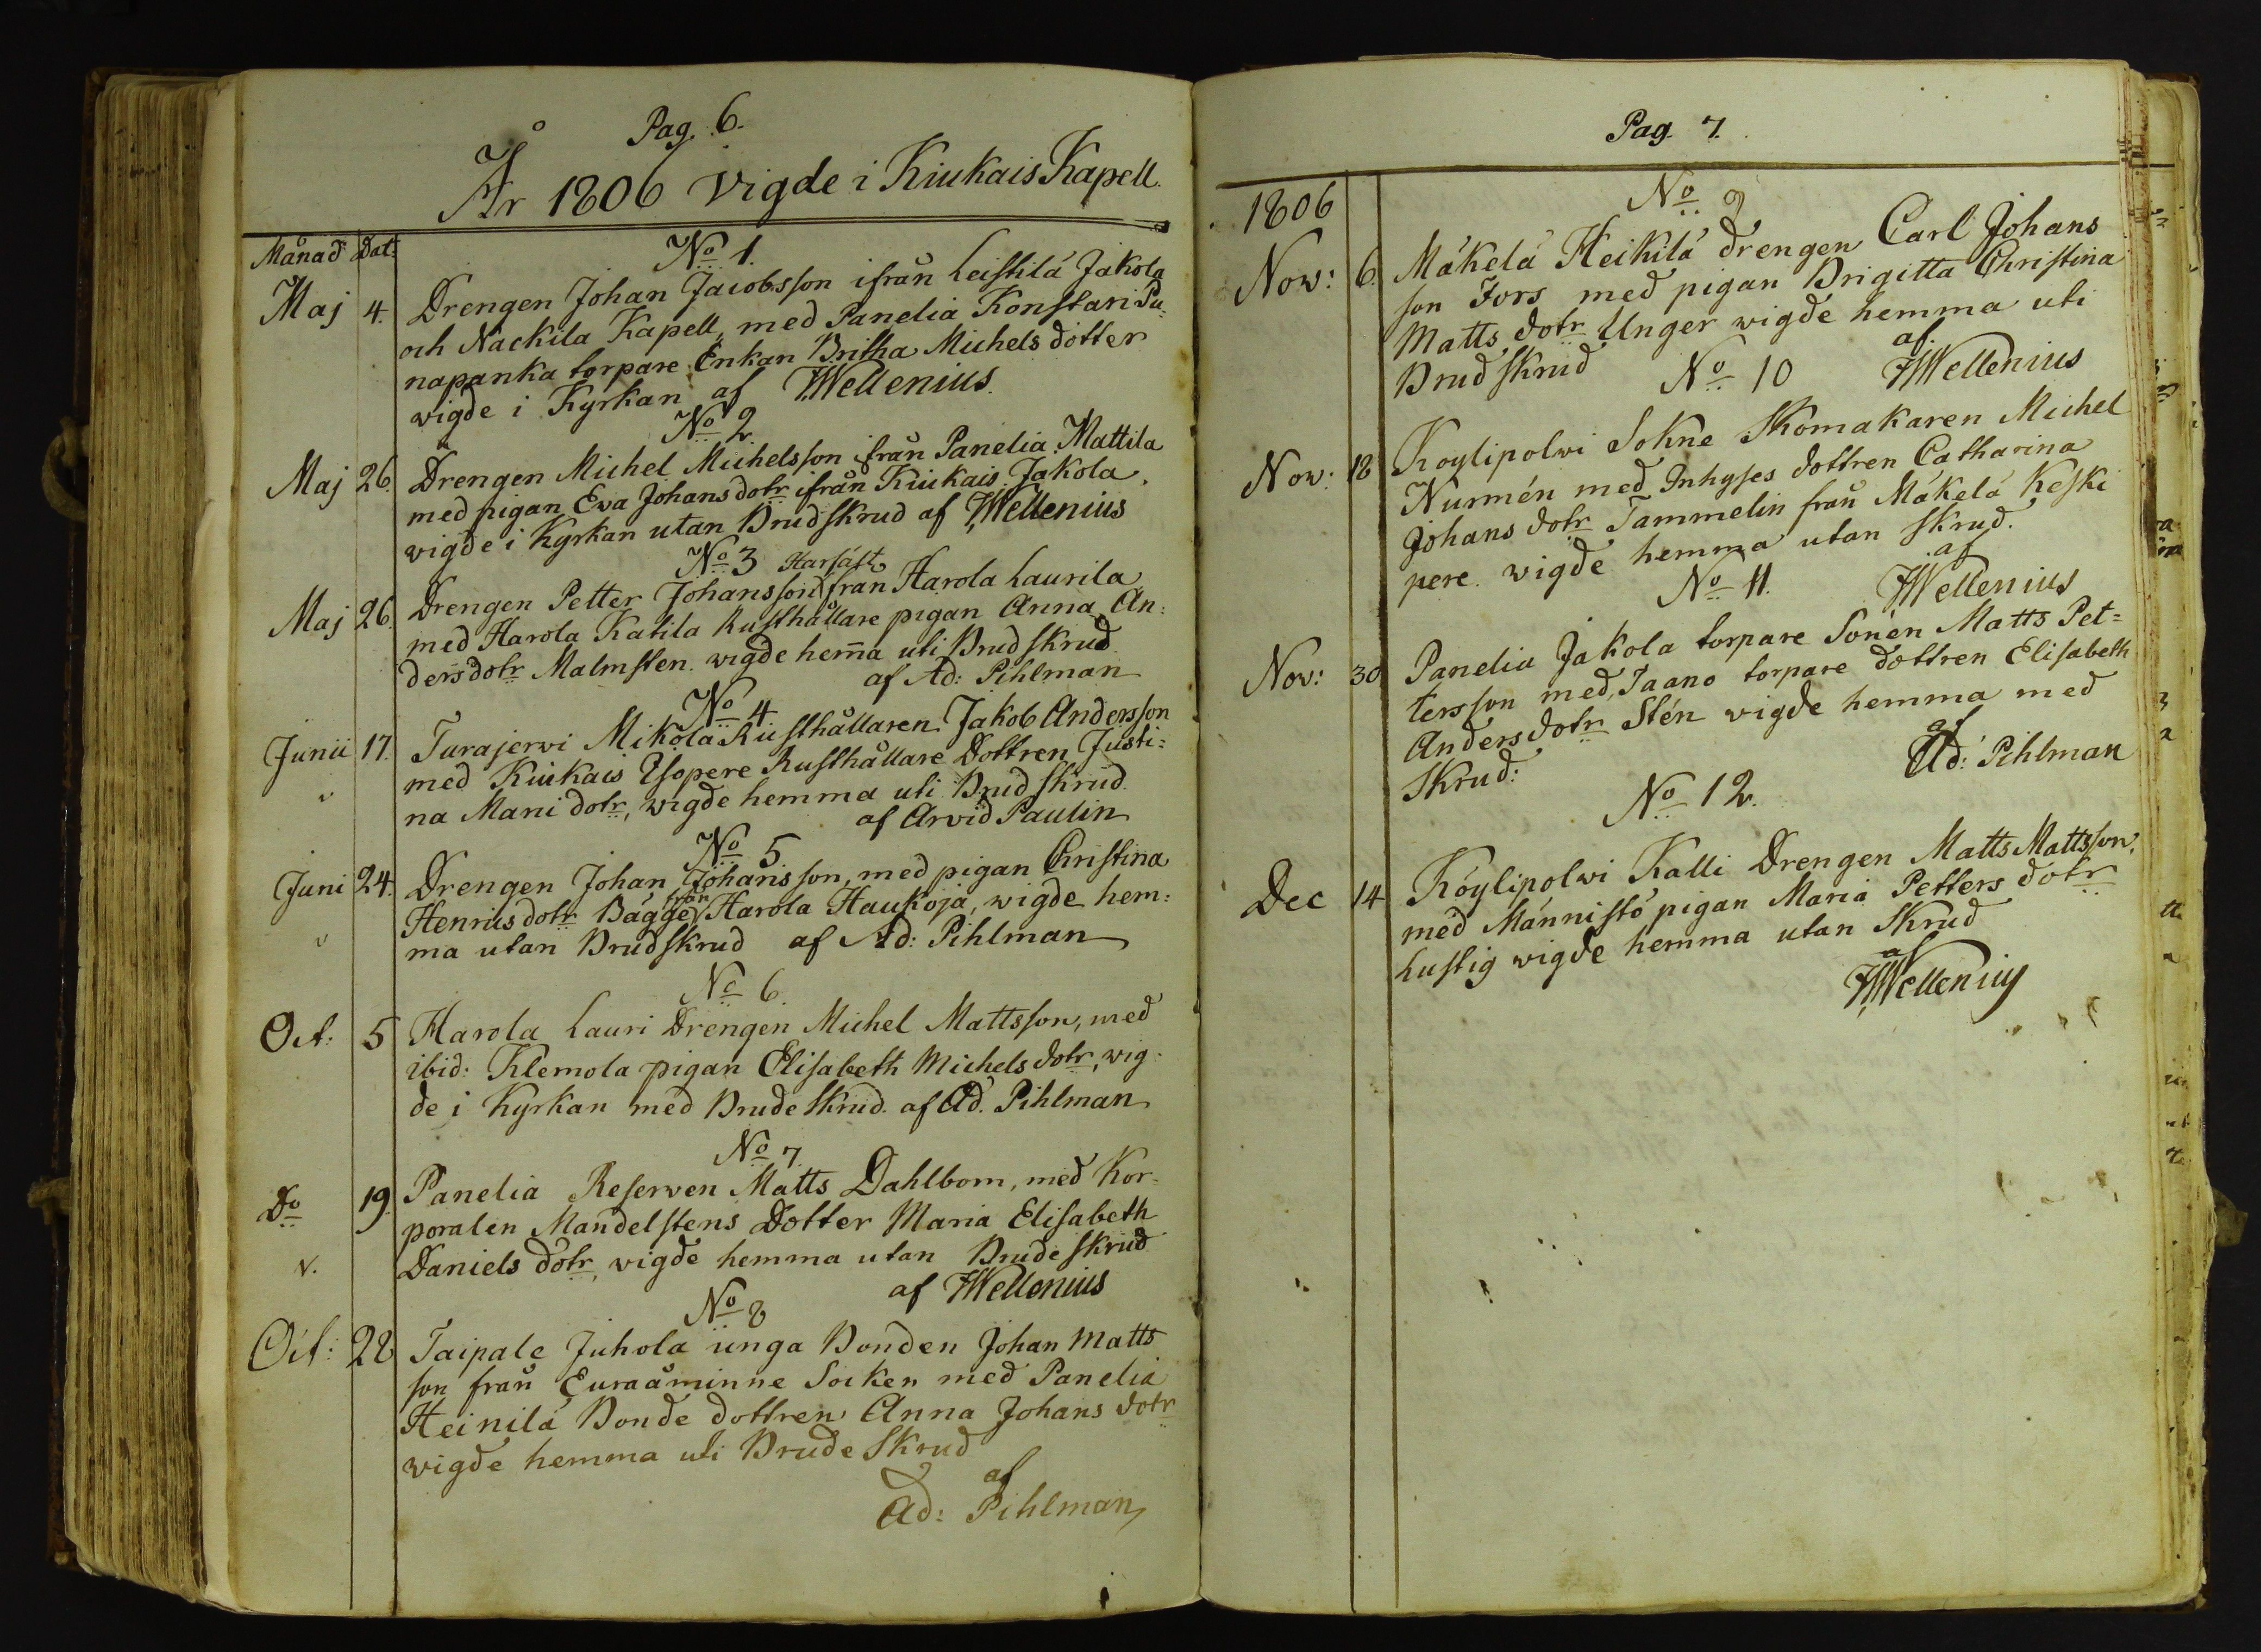 Pag. 6.
År 1806 Vigde i Kiukais Kapell.
Månad Dat:
No 1.
Maj 4. Drengen Johan Jacobsson ifrån Leistilä Jakola
och Nackila Kapell, med Panelia Konstari Pu-
napanka torpare Enkan Britha Michels dotter
wigde i Kyrkan af JWellenius.
No 2
Maj 26. Drengen Michel Michelsson från Panelia Mattila
med pigan Ewa Johans dotr ifrån Kiukais Jakola,
wigde i Kyrkan utan Brudskrud af JWellenius
No 3 Karsatt
Maj 26. Drengen Petter Johansson från Harola Laurila
med Harola Katila Rusthållare pigan Anna An:
dersdotr Malmsten. wigde hem̄a uti Brudskrud
af Ad: Pihlman
No 4
Junii 17. Turajerwi Mikola Rusthållaren Jakob Andersson
med Kiukais Esopere Rusthållare Dottren Justi=
na Mani dotr, wigde hemma uti Brudskrud.
af Arvid Paulin
No 5
Juni 24. Drengen Johan Johansson, med pigan Christina
Henrics dotr Bägge från Harola Haukoja, wigde hem:
ma utan Brudskrud af Ad: Pihlman
No 6.
Oct: 5 Harola Lauri Drengen Michel Mattsson, med
ibid: Klemola pigan Elisabeth Michels dotr, wig-
de i Kyrkan med Brude Skrud. af Ad. Pihlman
No 7.
Do 19. Panelia Reserven Matts Dahlbom, med Kor-
poralen Mandelstens Dotter Maria Elisabeth
v. Daniels dotr, wigde hemma utan Brude skrud
af JWellenius
No 8
Oct: 28 Taipale Juhola unga Bonden Johan Matts
son från Euraåminne Socken med Panelia
Heinilä Bonde dottren Anna Johans dotr
wigde hemma uti Brude Skrud
af
Ad: Pihlman
Pag. 7.
1806
No 9
Nov: 6. Mäkelä Heikilä drengen Carl Johans
son Fors med pigan Brigitta Christina
Matts dotr Unger wigde hemma uti
Brudskrud af
No 10 JWellenius
Nov: 18 Koylipolwi Sokne Skomakaren Michel
Nurmén med Inhyses dottren Catharina
Johans dotr Tammelin från Mäkelä Keski
pere. wigde hemma utan skrud.
af
No 11. JWellenius
Nov: 30 Panelia Jakola torpare Sonen Matts Pet=
tersson med, Taano torpare dottren Elisabeth
Anders dotr Stén wigde hemma med
Skrud: af
Ad: Pihlman
No 12.
Dec 14 Köylipolwi Kalli Drengen Matts Mattsson,
med Männistö pigan Maria Petters dotr
Lustig wigde hemma utan Skrud
af
JWellenius